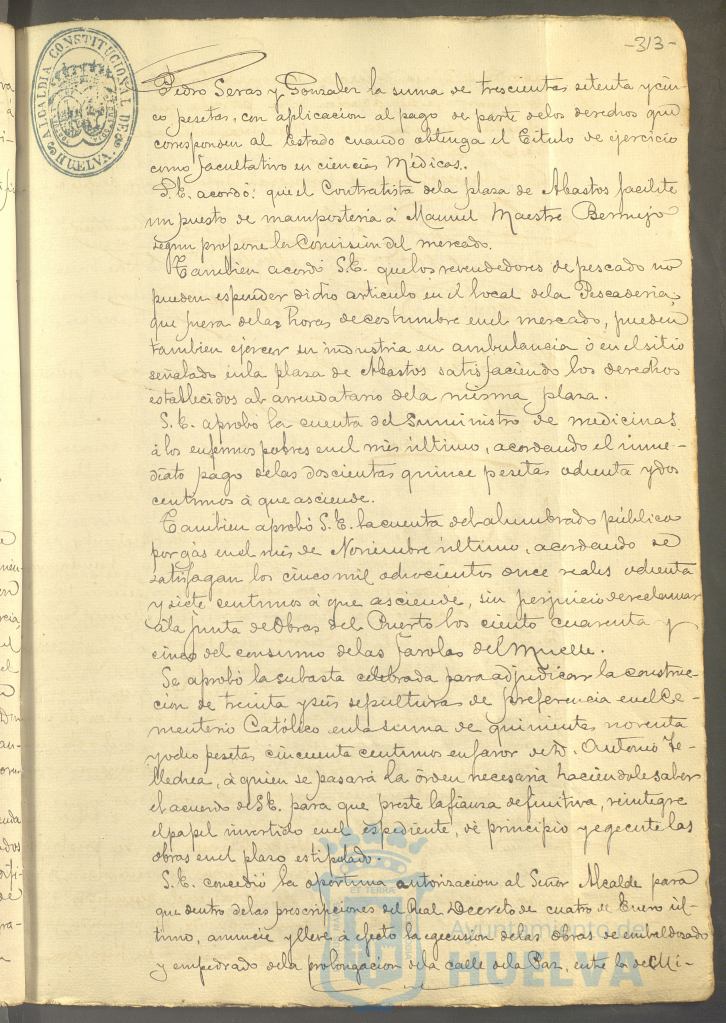 -313-
ALCALDIA CONSTITUCIONAL DE HUELVA.
Pedro Seras y Gonzalez la suma de trescientas setenta y cin-
co pesetas, con aplicacion al pago de parte de los derechos que
corresponden al Estado cuando obtenga el Titulo de ejercicio
como facultativo en ciencias Médicas.
S.E. acordó: que el Contratista de la plaza de Abastos facilite
un puesto de mamposteria á Manuel Maestre Bermejo
segun propone la Comision del mercado.
Tambien acordó S.E. que los revendedores de pescado no
pueden espender dicho articulo en el local de la Pescaderia,
que fuera de las horas de costumbre en el mercado, pueden
tambien ejercer su industria en ambulancia ó en el sitio
señalado en la plaza de Abastos satisfaciendo los derechos
establecidos al arrendatario de la misma plaza.
S.E. aprobó la cuenta del suministro de medicinas
á los enfermos pobres en el mes último, acordando el inme-
diato pago de las doscientas quince pesetas ochenta y dos
centimos á que asciende.
Tambien aprobó S.E. la cuenta del alumbrado público
por gas en el mes de Noviembre último, acordando se
satisfagan los cinco mil ochocientos once reales ochenta
y siete centimos á que asciende, sin perjuicio de reclamar
á la junta de Obras del Puerto los ciento cuarenta y
cinco del consumo de las farolas del Muelle.
Se aprobó la subasta celebrada para adjudicar la construc-
cion de treinta y seis sepulturas de preferencia en el Ce-
menterio Católico en la suma de quinientas noventa
y ocho pesetas cincuenta centimos en favor de D. Antonio Te-
llechea, á quien se pasará la órden necesaria haciendole saber
el acuerdo de S.E. para que preste la fianza definitiva, reintegre
el papel invertido en el espediente, dé principio y egecute las
obras en el plazo estipulado.
S.E. concedió la oportuna autorizacion al Señor Alcalde para
que dentro de las prescripciones del Real Decreto de cuatro de Enero úl-
timo, anuncie y lleve á efecto la egecucion de las obras de embaldosado
y empedrado de la prolongacion de la calle de la Paz, entre la de Mi-
ET TERRA
Ayuntamiento de
HUELVA